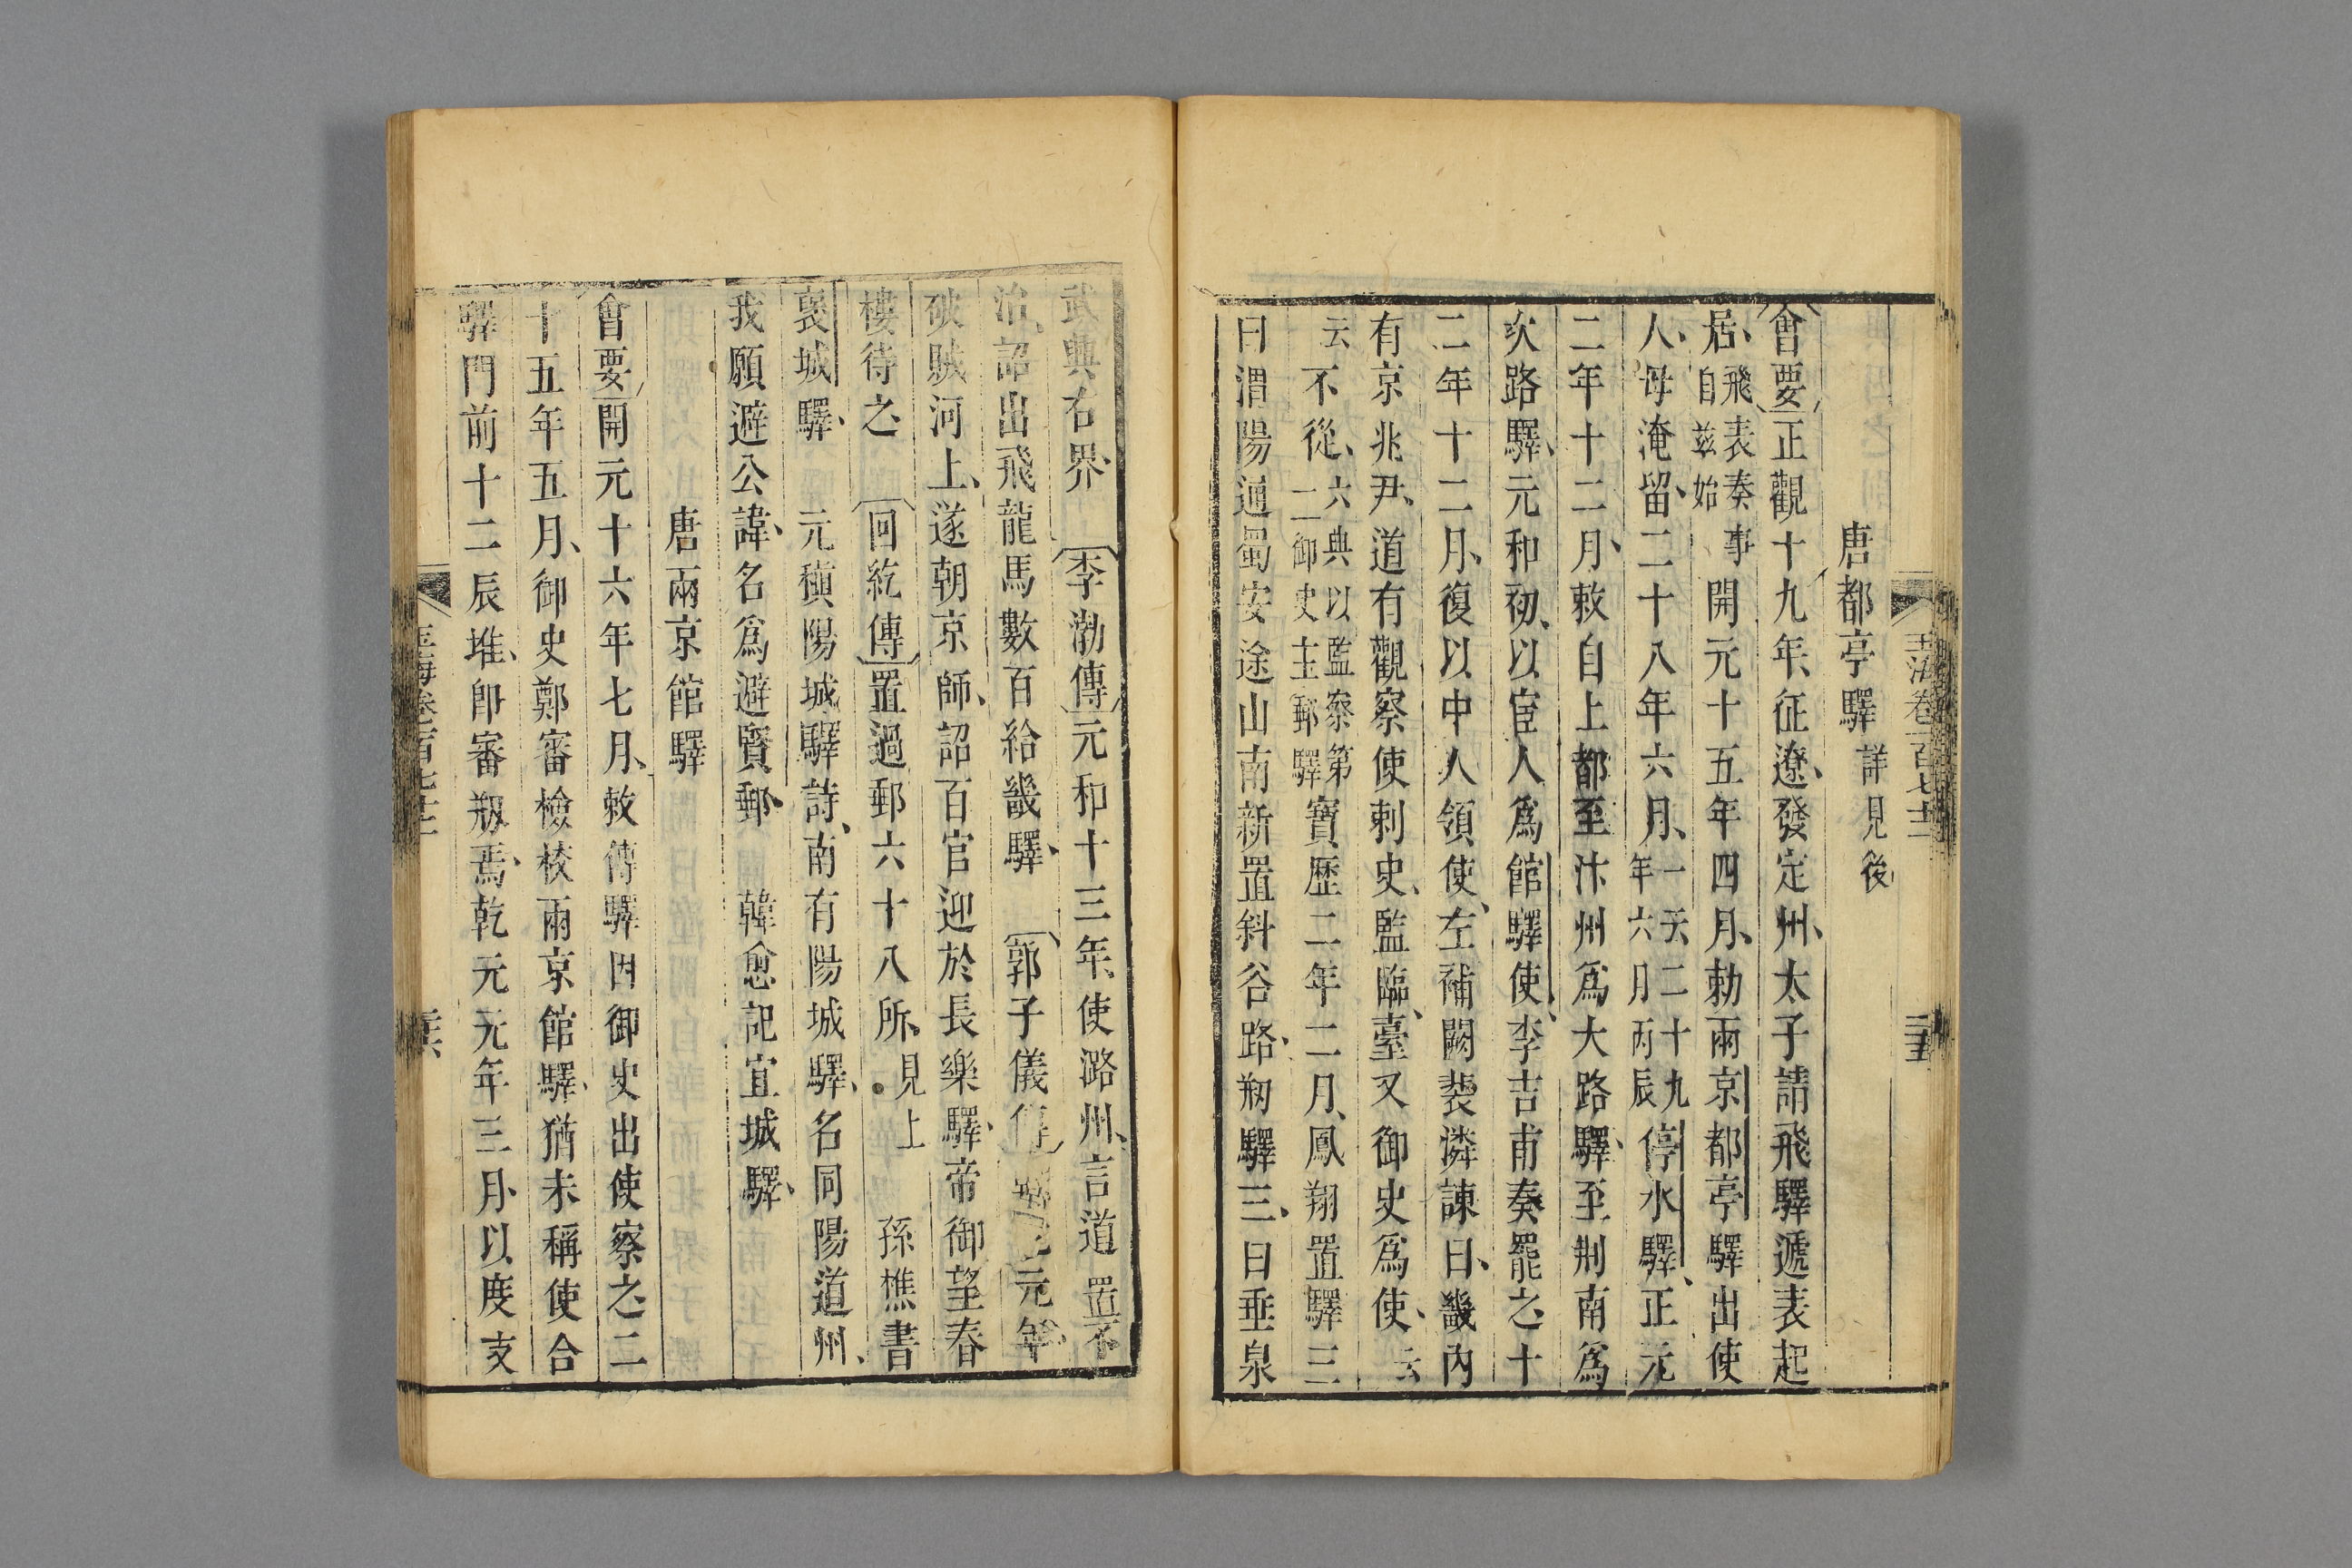 玉海卷一百七十二
二十五
唐都亭驛詳見後
會要正觀十九年征遼發定州太子請飛驛遞表起
居飛表奏事自兹始開元十五年四月勅兩京都亭驛出使
人毋淹留二十八年六月一云二十九年六月丙辰停水驛正元
二年十二月敕自上都至汴州爲大路驛至荆南爲
次路驛元和初以宦人爲館驛使李吉甫奏罷之十
二年十二月復以中人領使左補闕裴潾諫曰畿內
有京兆尹道有觀察使刺史監臨臺又御史爲使云
云不從六典以監察第二御史主郵驛寶歷二年二月鳳翔置驛三
曰渭陽通蜀安途山南新置斜谷路剏驛三曰垂泉
武興右界李渤傳元和十三年使潞州言道置不
治詔出飛龍馬數百給畿驛郭子儀傳元年
破賊河上遂朝京師詔百官迎於長樂驛帝御望春
樓待之回紇傳置過郵六十八所見上孫樵書
褒城驛元稹陽城驛詩南有陽城驛名同陽道州
我願避公諱名爲避賢郵韓愈記宜城驛
唐兩京館驛
會要開元十六年七月敕傳驛因御史出使察之二
十五年五月御史鄭審檢校兩京館驛猶未稱使合
驛門前十二辰堆卽審剏焉乾元元年三月以度支
玉海卷一百七十二